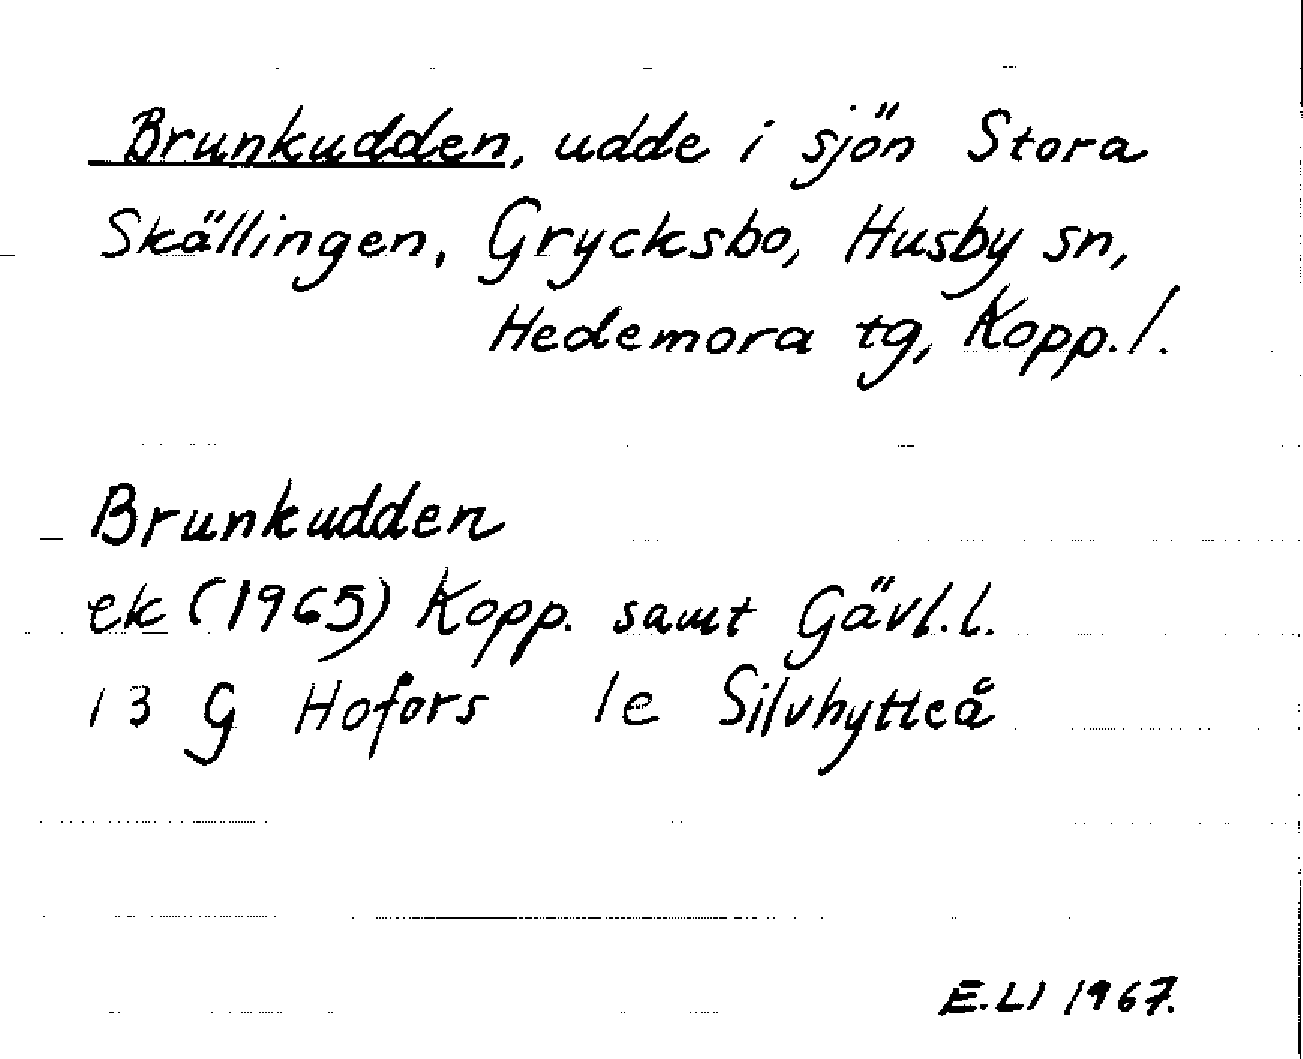 Brunkudden, udde i sjön Stora
Skällingen, Grycksbo, Husby sn,
Hedemora tg, Kopp. l.
Brunkudden
ek (1965) Kopp. samt Gävl. l.
13 G Hofors 1e Silvhytteå
E.LJ 1967.